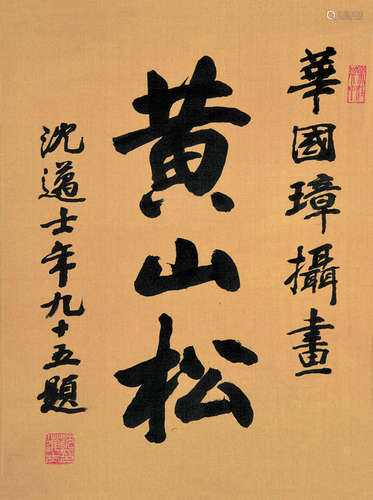 華國璋攝畫
黄山松
沈邁士年九十五題